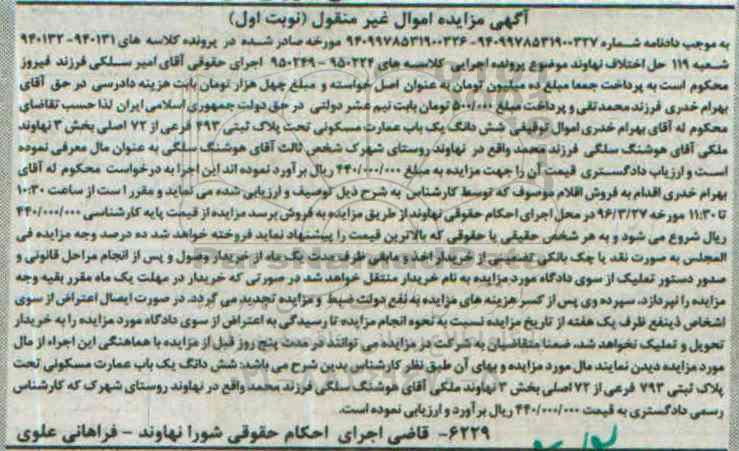 آگهی مزایده اموال غیر منقول (نوبت اول)
به موجب دادنامه شماره ۹۴۰۹۹۷۸۵۳۱۹۰۰۳۲۷-۹۴۰۹۹۷۸۵۳۱۹۰۰۳۲۶ مورخه صادر شده در پرونده کلاسه های ۹۴۰۱۳۱-۹۴۰۱۳۲
شعبه ۱۱۹ حل اختلاف نهاوند موضوع پرونده اجرایی کلاسه های ۹۵۰۲۲۴-۹۵۰۲۴۹ اجرای حقوقی آقای امیر سلکی فرزند فیروز
محکوم است به پرداخت جمعا مبلغ ده میلیون تومان به عنوان اصل خواسته و مبلغ چهل هزار تومان بابت هزینه دادرسی در حق آقای
بهرام خدری فرزند محمدتقی و پرداخت مبلغ ۵۰۰/۰۰۰ تومان بابت نیم عشر دولتی در حق دولت جمهوری اسلامی ایران لذا حسب تقاضای
محکوم له آقای بهرام خدری اموال توقیفی شش دانگ یک باب عمارت مسکونی تحت پلاک ثبتی ۴۹۳ فرعی از ۷۲ اصلی بخش ۳ نهاوند
ملکی آقای هوشنگ سلگی فرزند محمد واقع در نهاوند روستای شهرک شخص ثالث آقای هوشنگ سلگی به عنوان مال معرفی نموده
است و ارزیاب دادگستری قیمت آن را جهت مزایده به مبلغ ۴۴۰/۰۰۰/۰۰۰ ریال برآورد نموده اند این اجرا به درخواست محکوم له آقای
بهرام خدری اقدام به فروش اقلام موصوف که توسط کارشناس به شرح ذیل توصیف و ارزیابی شده می نماید و مقرر است از ساعت ۱۰:۳۰
تا ۱۱:۳۰ مورخه ۹۶/۳/۲۷ در محل اجرای احکام حقوقی نهاوند از طریق مزایده به فروش برسد مزایده از قیمت پایه کارشناسی ۴۴۰/۰۰۰/۰۰۰
ریال شروع می شود و به هر شخص حقیقی یا حقوقی که بالاترین قیمت را پیشنهاد نماید فروخته خواهد شد ده درصد وجه مزایده فی
المجلس به صورت نقد یا چک بانکی تضمینی از خریدار اخذ و مابقی ظرف مدت یک ماه از خریدار وصول و پس از انجام مراحل قانونی و
صدور دستور تملیک از سوی دادگاه مورد مزایده به نام خریدار منتقل خواهد شد در صورتی که خریدار در مهلت یک ماه مقرر بقیه وجه
مزایده را نپردازد. سپرده وی پس از کسر هزینه های مزایده به نفع دولت ضبط و مزایده تجدید می گردد. در صورت ایصال اعتراض از سوی
اشخاص ذینفع ظرف یک هفته از تاریخ مزایده نسبت به نحوه انجام مزایده تا رسیدگی به اعتراض از سوی دادگاه مورد مزایده را به خریدار
تحویل و تملیک نخواهد شد. ضمنا متقاضیان به شرکت در مزایده می توانند در مدت پنج روز قبل از مزایده با هماهنگی این اجراء از مال
مورد مزایده دیدن نمایند مال مورد مزایده و بهای آن طبق نظر کارشناس بدین شرح می باشد: شش دانگ یک باب عمارت مسکونی تحت
پلاک ثبتی ۷۹۳ فرعی از ۷۲ اصلی بخش ۳ نهاوند ملکی آقای هوشنگ سلگی فرزند محمد واقع در نهاوند روستای شهرک که کارشناس
رسمی دادگستری به قیمت ۴۴۰/۰۰۰/۰۰۰ ریال برآورد و ارزیابی نموده است.
۶۲۲۹- قاضی اجرای احکام حقوقی شورا نهاوند - فراهانی علوی